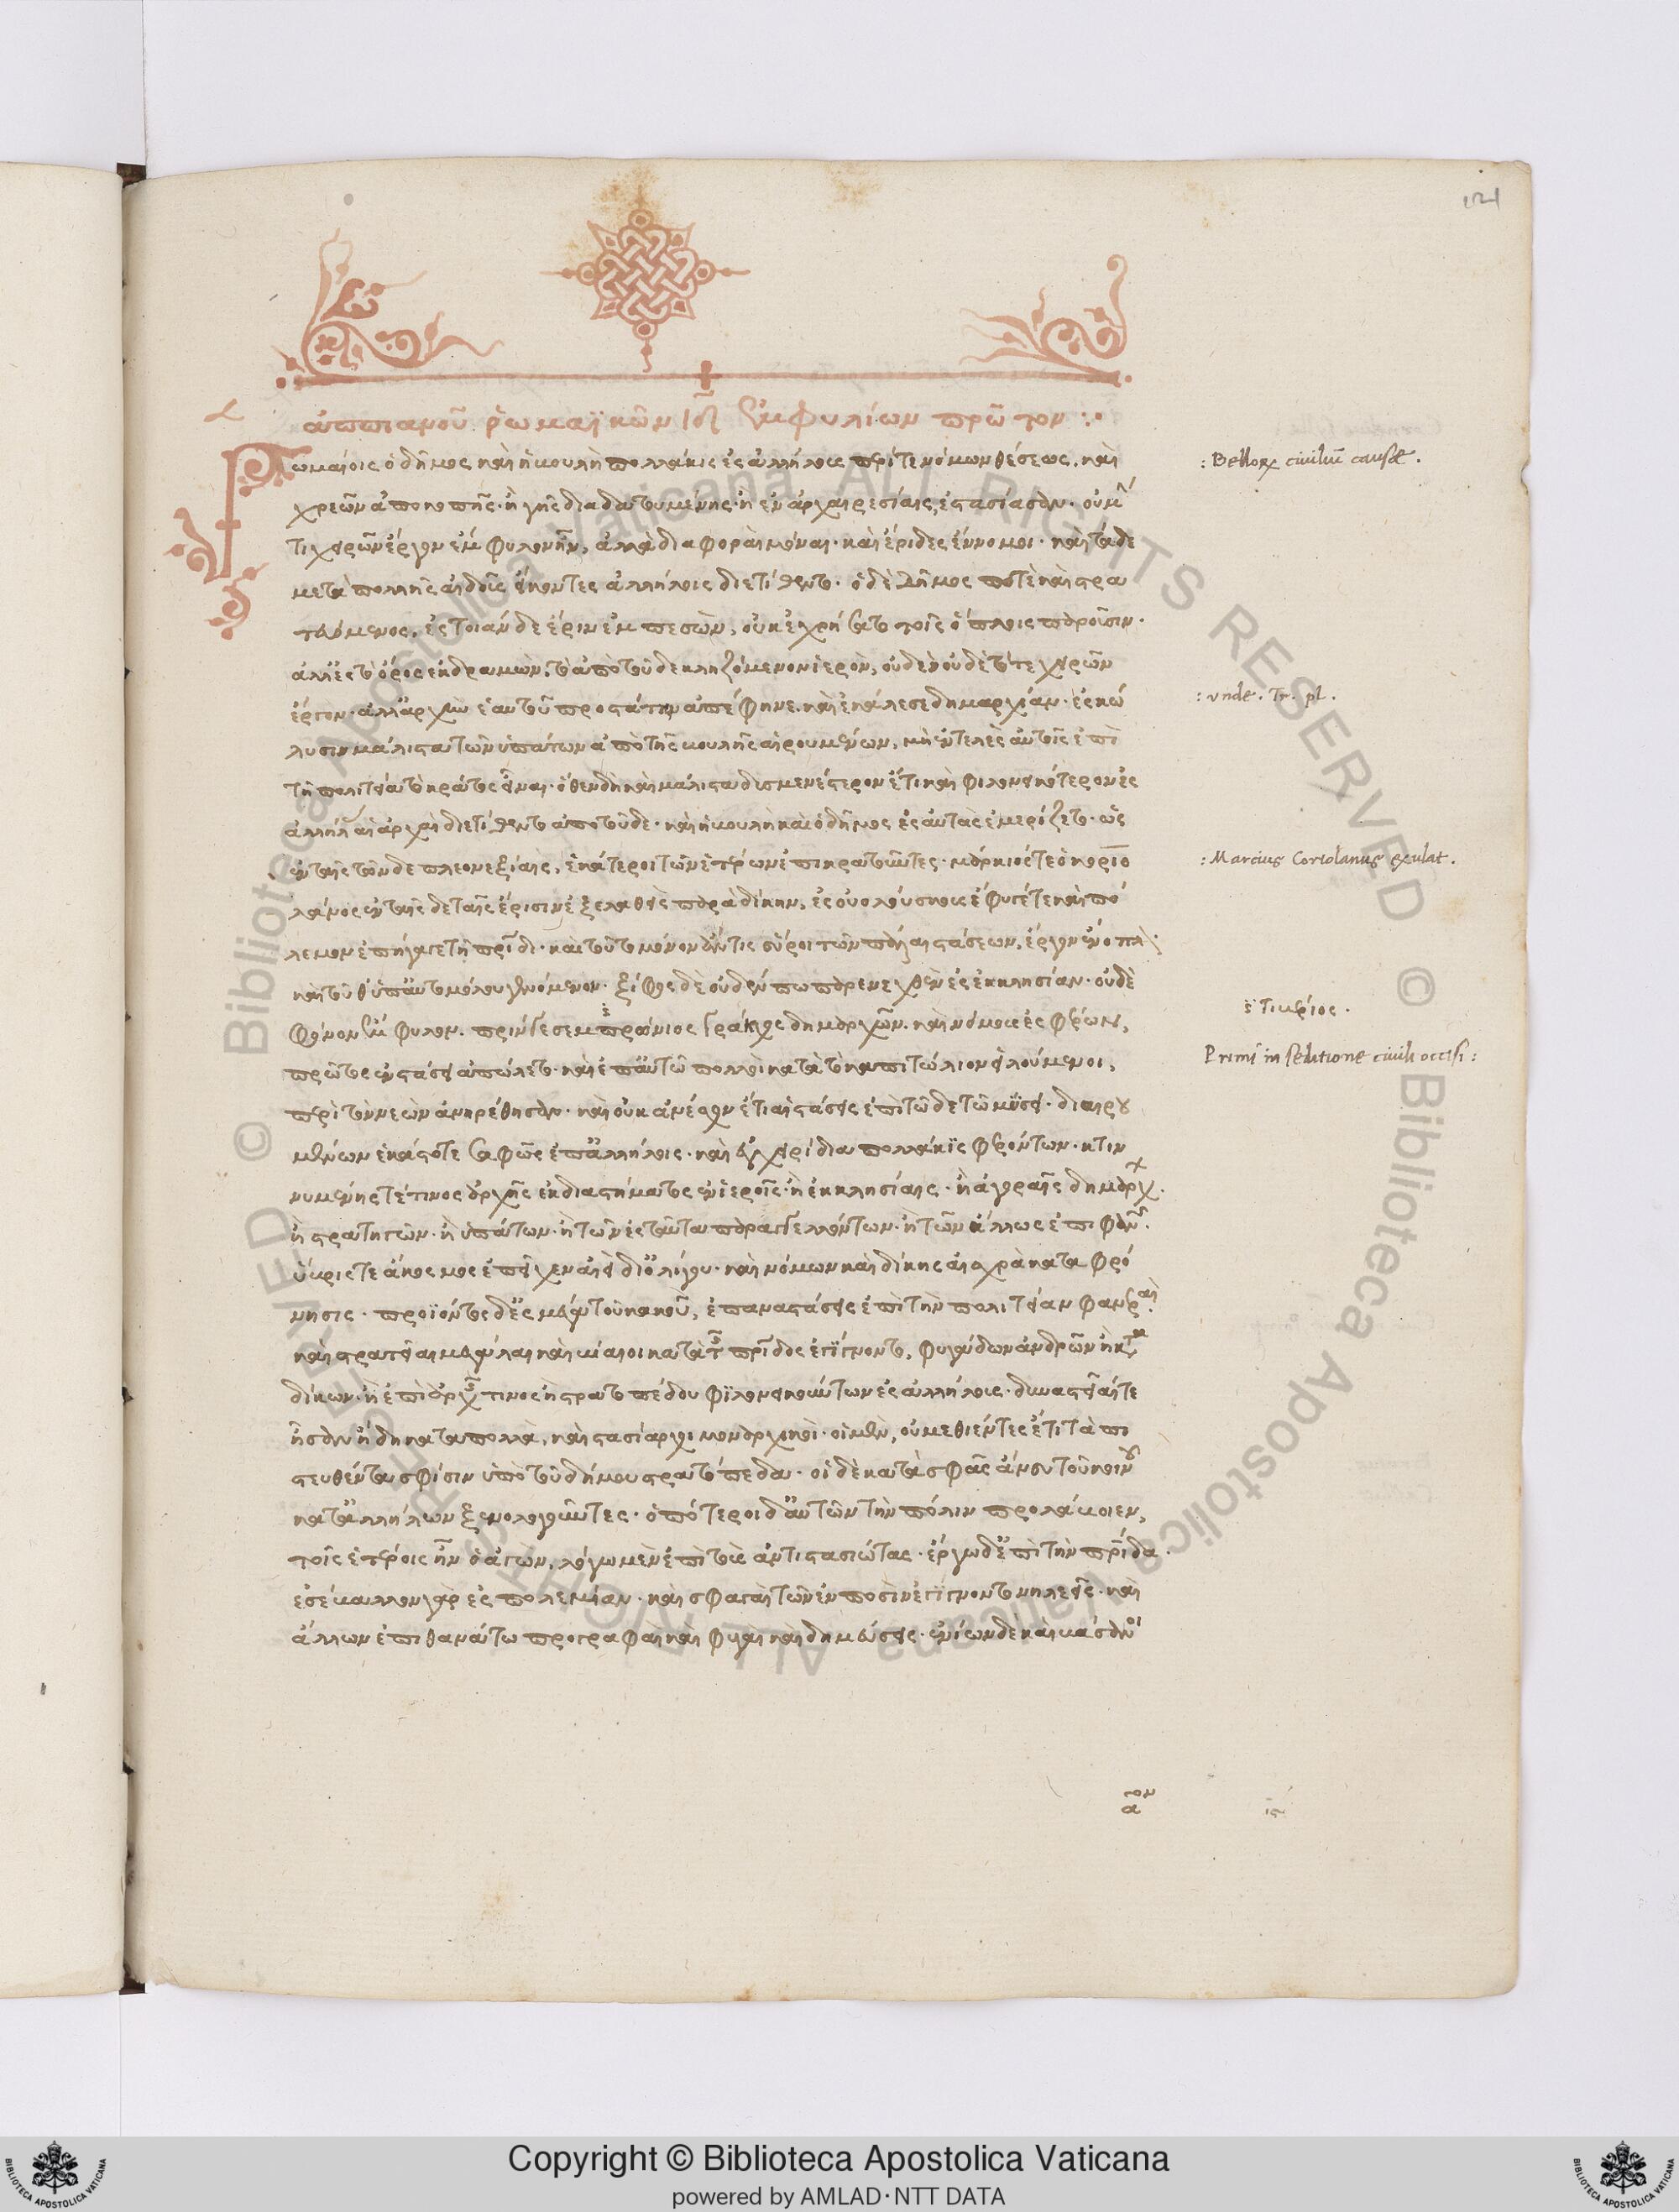 121
ἀππιανοῦ ῥωμαϊκῶν ἐμφυλίων πρῶτον :·
Ῥωμαίοις ὁ δῆμος καὶ ἡ βουλὴ πολλάκις ἐς ἀλλήλους περί τε νόμων θέσεως, καὶ
: Bellorum ciuiliũ causae .
χρεῶν ἀποκοπῆς· ἢ γῆς διαδατουμένης· ἢ ἐν ἀρχαιρεσίαις, ἐστασίασαν· οὐ μήν
τι χειρῶν ἔργον ἔμφυλον ἦν, ἀλλὰ διαφοραὶ μόναι· καὶ ἔριδες ἔννομοι· καὶ τάδε
μετὰ πολλῆς αἰδοῦς εἴκοντες ἀλλήλοις διετίθεντο· ὁ δὲ δῆμος ποτὲ καὶ στρα
τευόμενος, ἐς τοιάνδε ἔριν ἐμπεσὼν, οὐκ ἐχρήσατο τοῖς ὅπλοις παροῦσιν·
ἀλλ' ἐς τὸ ὄρος ἐκδραμὼν, τὸ ἀπὸ τοῦδε κληζόμενον ἱερὸν, οὐδὲν οὐδὲ τότε χειρῶν
ἔργον· ἀλλ' ἀρχὴν ἑαυτοῦ προστάτην ἀπέφηνε. καὶ ἐκάλεσε δημαρχίαν· ἐς κώ
: vnde . Tr. pl .
λυσιν μάλιστα τῶν ὑπάτων ἀπὸ τῆς βουλῆς αἱρουμένων, μὴ ἐντελὲς αὐτοῖς ἐπὶ
τῇ πολιτείᾳ τὸ κράτος εἶναι· ὅθεν δὴ καὶ μάλιστα δυσμενέστερον ἔτι καὶ φιλονεικότερον ἐς
ἀλλήλας αἱ ἀρχαὶ διετίθεντο ἀπὸ τοῦδε· καὶ ἡ βουλὴ καὶ ὁ δῆμος ἐς αὐτὰς ἐμερίζετο· ὡς
ἐν ταῖς τῶνδε πλεονεξίαις, ἑκάτεροι τῶν ἑτέρων ἐπικρατοῦντες· μάρκιός τε ὁ κοριο
: Marcius Coriolanus exulat .
λανος ἐν ταῖσδε ταῖς ἔρισιν ἐξελαθεὶς παρὰ δίκην, ἐς οὐολούσκους ἔφυγέ τε καὶ πό
λεμον ἐπήγαγε τῇ πατρίδι· καὶ τοῦτο μόνον ἄν τις εὕροι τῶν πάλαι στάσεων, ἔργον ἔνοπλ
καὶ τοῦθ' ὑπ' αὐτομόλου γενόμενον· ξίφος δὲ οὐδέν πω παρενεχθὲν ἐς ἐκκλησίαν· οὐδὲ
ἐ Τιβέριος .
φόνον ἔμφυλον. πρίν γε σεμπρώνιος γράκχος δημαρχῶν. καὶ νόμους ἐσφέρων,
Primi in seditione ciuili occisi :
πρῶτος ἐν στάσει ἀπώλετο· καὶ ἐπ' αὐτῷ πολλοὶ κατὰ τὸ καπιτώλιον εἱλούμενοι,
περὶ τὸν νεὼν ἀνῃρέθησαν· καὶ οὐκ ἀνέσχον ἔτι αἱ στάσεις ἐπὶ τῷδε τῷ μύσει· διαιρου
μένων ἑκάστοτε σαφῶς ἐπ' ἀλλήλοις· καὶ ἐγχειρίδια πολλάκις φερόντων· κτιν
νυμένης τέ τινος ἀρχῆς ἐκ διαστήματος ἐν ἱεροῖς· ἢ ἐκκλησίαις· ἢ ἀγοραῖς δημάρχ.
ἢ στρατηγῶν· ἢ ὑπάτων· ἢ τῶν ἐς ταῦτα παραγγελλόντων· ἢ τῶν ἄλλως ἐπιφανῶν.
ὕβρις τε ἄκοσμος ἐπεῖχεν αἰεὶ δι' ὀλίγου· καὶ νόμων καὶ δίκης αἰσχρὰ καταφρό
νησις· προϊόντος δ' ἐς μέγα τοῦ κακοῦ, ἐπαναστάσεις ἐπὶ τὴν πολιτείαν φανεραὶ
καὶ στρατεῖαι μεγάλαι καὶ βίαιοι κατὰ τῆς πατρίδος ἐγίγνοντο, φυγάδων ἀνδρῶν ἢ κατα
δίκων· ἢ ἐπὶ ἀρχῆς τινος ἢ στρατοπέδου φιλονεικούντων ἐς ἀλλήλους· δυναστεῖαί τε
ἦσαν ἤδη κατὰ πολλὰ, καὶ στασίαρχοι μοναρχικοί· οἱ μὲν, οὐ μεθιέντες ἔτι τὰ πι
στευθέντα σφίσιν ὑπὸ τοῦ δήμου στρατόπεδα· οἱ δὲ κατὰ σφᾶς ἄνευ τοῦ κοινοῦ
κατ' ἀλλήλων ξενολογοῦντες· ὁπότεροι δ' αὐτῶν τὴν πόλιν προλάβοιεν,
τοῖς ἑτέροις ἦν ὁ ἀγὼν, λόγῳ μὲν ἐπὶ τοὺς ἀντιστασιώτας· ἔργῳ δ' ἐπὶ τὴν πατρίδα·
ἐσέβαλλον γὰρ ἐς πολεμίαν· καὶ σφαγαὶ τῶν ἐν ποσὶν ἐγίγνοντο νηλεεῖς· καὶ
ἄλλων ἐπὶ θανάτῳ προγραφαὶ καὶ φυγαὶ καὶ δημεύσεις· ἐνίων δὲ καὶ βάσανοι
αον